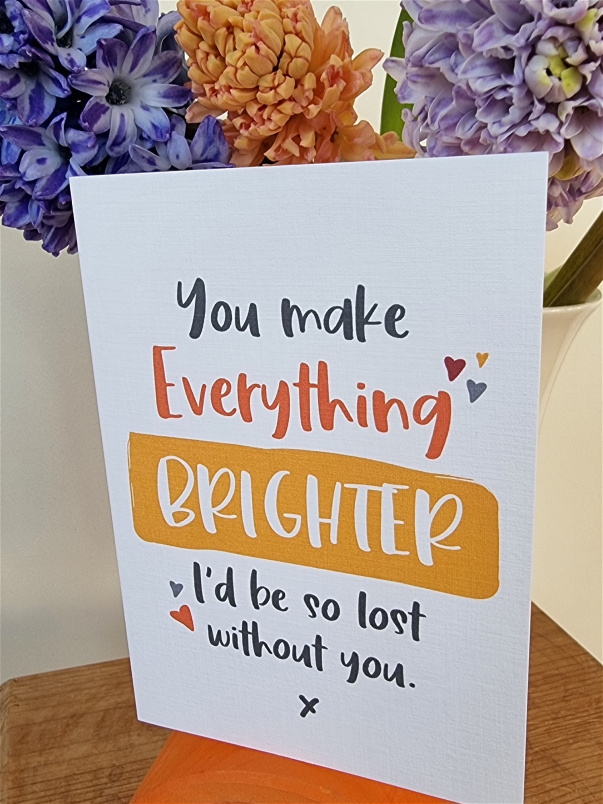 You make
Everything
BRIGHTER
I'd be so lost
without you.
x